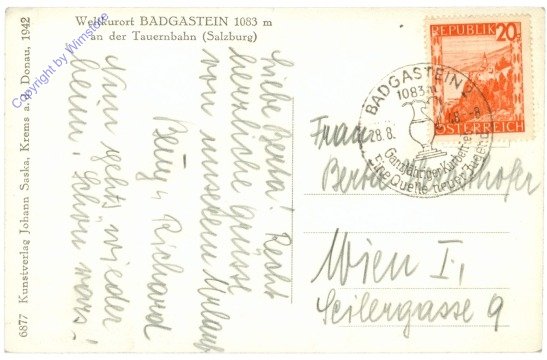 Weltkurort BADGASTEIN 1083 m
an der Tauernbahn (Salzburg)
6877 Kunstverlag Johann Saska, Krems a. d. Donau, 1942
Copyright by Wimstore
REPUBLIK
20g
ÖSTERREICH
BADGASTEIN
1083 m
28.8.
-8
Ganzjähriger Kurbetrieb
Eine Quelle neuer Jugend
Liebe Berta! Recht
herrliche Grüsse
von unserem Urlaub
Richard
Nun gehts wieder
heim. Schön wars!
Frau
Berta
Wien I.,
Seilergasse 9